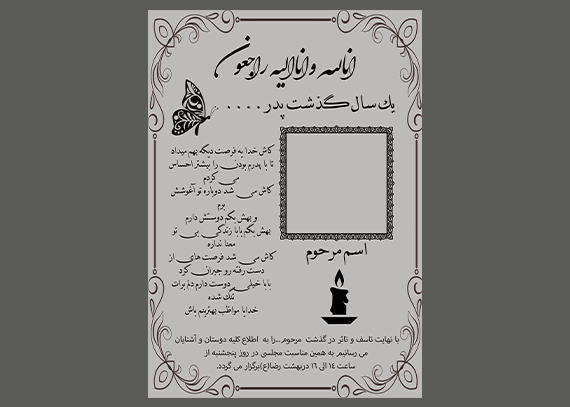 انالله و اناالیه راجعون
یك سال گذشت پدر....
كاش خدا یه فرصت دیگه بهم میداد
تا با پدرم بودن را بیشتر احساس
می كردم
كاش می شد دوباره تو آغوشش
برم
و بهش بگم دوستش دارم
بهش بگم بابا زندگی بی تو
معنا نداره
كاش می شد فرصت های از
دست رفته رو جبران كرد
بابا خیلی دوست دارم دلم برات
تنگ شده
خدایا مواظب بهترینم باش
اسم مرحوم
با نهایت تاسف و تاثر در گذشت مرحوم...را به اطلاع كلیه دوستان و آشنایان
می رسانیم به همین مناسبت مجلسی در روز پنجشنبه از
ساعت ۱٤ الی ۱٦ دربهشت رضا(ع)برگزار می گردد.